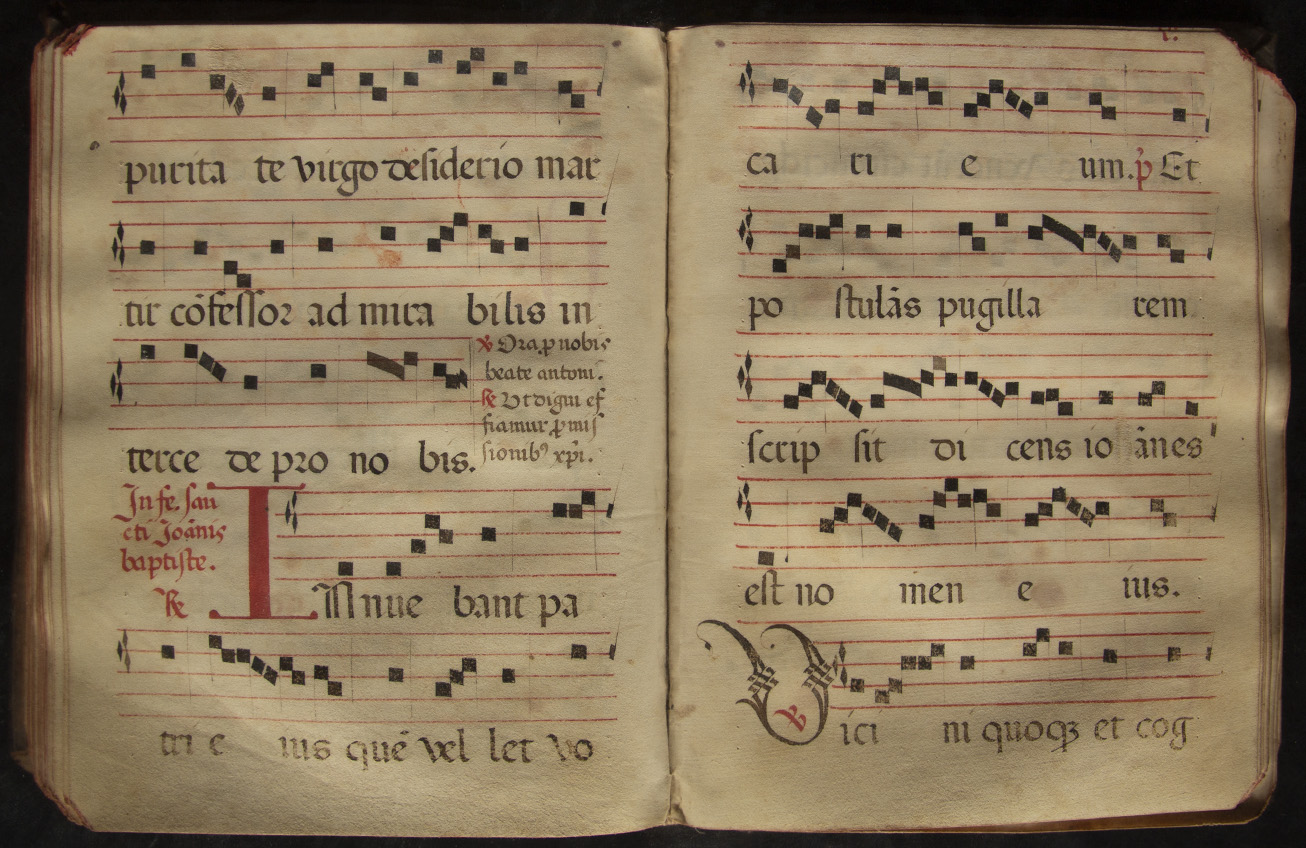 purita te virgo desiderio mar
tir cōfessor ad mira bilis in
terce de pro no bis.
℣ Ora p nobis
beate antoni.
℟ Ut digni ef
fiamur p mis
sionibꝰ xp̄i.
In fe. san
cti Joānis
baptiste.
℟
Innue bant pa
tri e ius quē vel let vo
ca ri e um. p̄ Et
po stulās pugilla rem
scrip sit di cens io ānes
est no men e ius.
℣
Vici ni quoqꝫ et cog